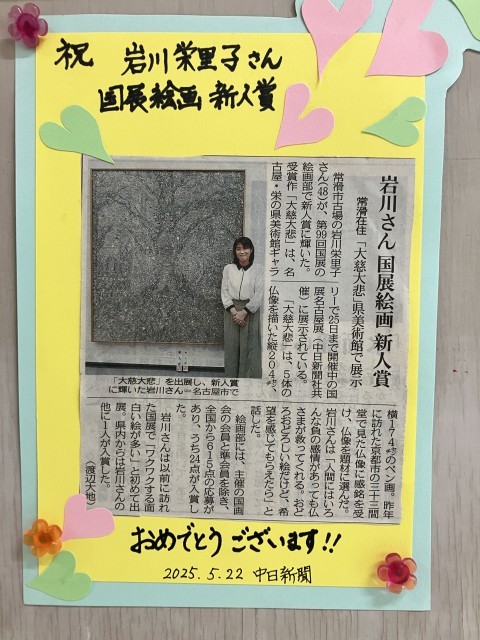 祝 岩川栄里子さん
国展絵画 新人賞
岩川さん 国展絵画 新人賞
常滑在住 「大慈大悲」県美術館で展示
常滑市古場の岩川栄里子
さん(48)が、第99回国展の
絵画部で新人賞に輝いた。
受賞作「大慈大悲」は、名
古屋・栄の県美術館ギャラ
リーで25日まで開催中の国
展名古屋展(中日新聞社共
催)に展示されている。
「大慈大悲」は、5体の
仏像を描いた縦204㌢、
横174㌢のペン画。昨年
に訪れた京都市の三十三間
堂で見た仏像に感銘を受
け、仏像を題材に選んだ。
岩川さんは「人間にはいろ
んな負の感情があっても仏
さまが救ってくれる。おど
ろおどろしい絵だけど、希
望を感じてもらえたら」と
話した。
絵画部には、主催の国画
会の会員と準会員を除き、
全国から615点の応募が
あり、うち24点が入賞し
た。
岩川さんは以前に訪れ
た国展で「ワクワクする面
白い絵が多い」と初めて出
展。県内からは岩川さんの
他に1人が入賞した。
(渡辺大地)
「大慈大悲」を出展し、新人賞
に輝いた岩川さん=名古屋市で
おめでとうございます!!
2025.5.22 中日新聞